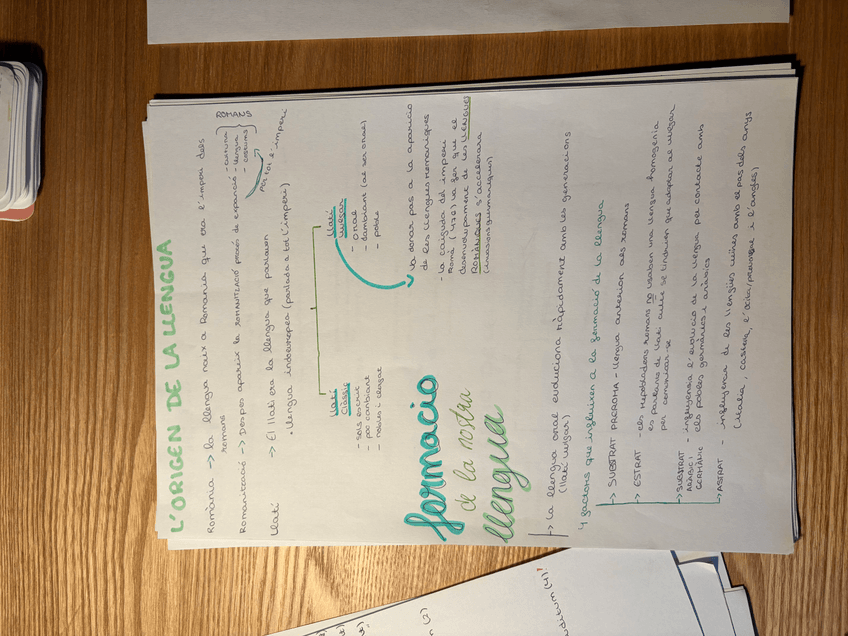 L'ORIGEN DE LA LLENGUA
Romània -> la llengua naix a Romania que era l'imperi dels
romans
Romanització -> Despés apareix la ROMANITZACIÓ procés de expanció - cultura
- llengua
- costums
ROMANS
per tot l'imperi
Llatí -> El llatí era la llengua que parlaven
. llengua indoeuropea (parlada a tot l'imperi)
llatí
clàssic
- sols escrit
- poc canviant
- nobles i clergat
llatí
vulgar
- oral
- cambiant (al ser oral)
- poble
va donar pas a la aparició
de les llengues romàniques
- la caiguda del imperi
Romà (476) va fer que el
desenvolupament de les LLENGUES
ROMÀNIQUES s'accelerara
(invasions germàniques)
formacio
de la nostra
llengua
-> la llengua oral evoluciona ràpidament amb les generacions
(llatí vulgar)
4 factors que influixen a la formació de la llengua
-> SUBSTRAT PREROMÀ - llengua anterior als romans
-> ESTRAT - els repobladors romans no usaben una llengua homogenia
es parlaven de llatí culte se tindrien que adaptar al vulgar
per comunicar-se
-> SUBSTRAT
ARÀBIC i
GERMÀNIC
- influyencia l'evolució de la llengua per contacte amb
els pobles germànics i aràbics
-> ASTRAT - influencia de les llengües veïnes amb el pas dels anys
(Italià, castellà, l'occità/provençal i l'anglès)
m (2)
uditum (4)